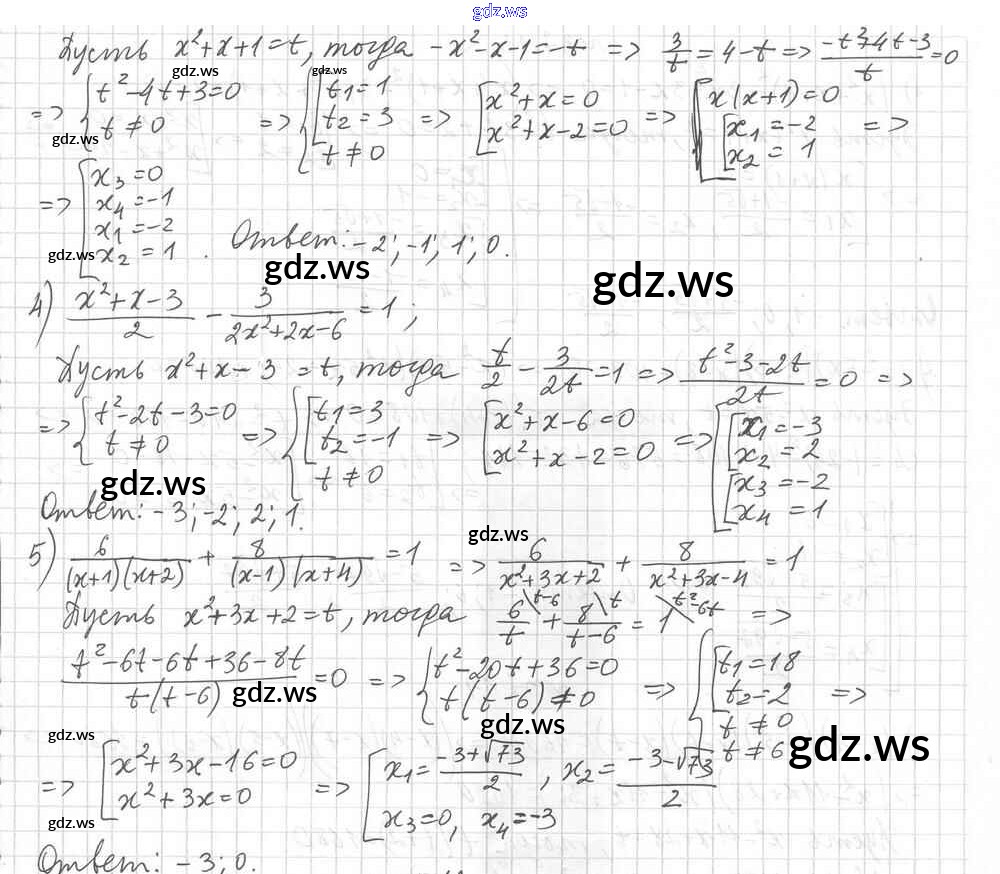 gdz.ws
Пусть x²+x+1=t, тогда -x²-x-1=-t => 3/t = 4-t => (-t²+4t-3)/t = 0
gdz.ws gdz.ws
=> { t²-4t+3=0; t≠0 => { [ t₁=1; t₂=3; t≠0 => [ x²+x=0; x²+x-2=0 => [ x(x+1)=0; [ x₁=-2; x₂=1 =>
gdz.ws
=> [ x₃=0; x₄=-1; x₁=-2; x₂=1. Ответ: -2; -1; 1; 0.
gdz.ws gdz.ws gdz.ws
4) (x²+x-3)/2 - 3/(2x²+2x-6) = 1;
Пусть x²+x-3=t, тогда t/2 - 3/2t = 1 => (t²-3-2t)/2t = 0 =>
=> { t²-2t-3=0; t≠0 => { [ t₁=3; t₂=-1; t≠0 => [ x²+x-6=0; x²+x-2=0 => [ [ x₁=-3; x₂=2; [ x₃=-2; x₄=1
gdz.ws
Ответ: -3; -2; 2; 1.
gdz.ws
5) 6/((x+1)(x+2)) + 8/((x-1)(x+4)) = 1 => 6/(x²+3x+2) + 8/(x²+3x-4) = 1
Пусть x²+3x+2=t, тогда 6/t \t-6 + 8/(t-6) \t = 1 \t²-6t =>
(t²-6t-6t+36-8t)/(t(t-6)) = 0 => { t²-20t+36=0; t(t-6)≠0 => { [ t₁=18; t₂=2; t≠0; t≠6 =>
gdz.ws gdz.ws
gdz.ws gdz.ws
=> [ x²+3x-16=0; x²+3x=0 => [ x₁=(-3+√73)/2, x₂=(-3-√73)/2; x₃=0, x₄=-3
gdz.ws
Ответ: -3; 0.